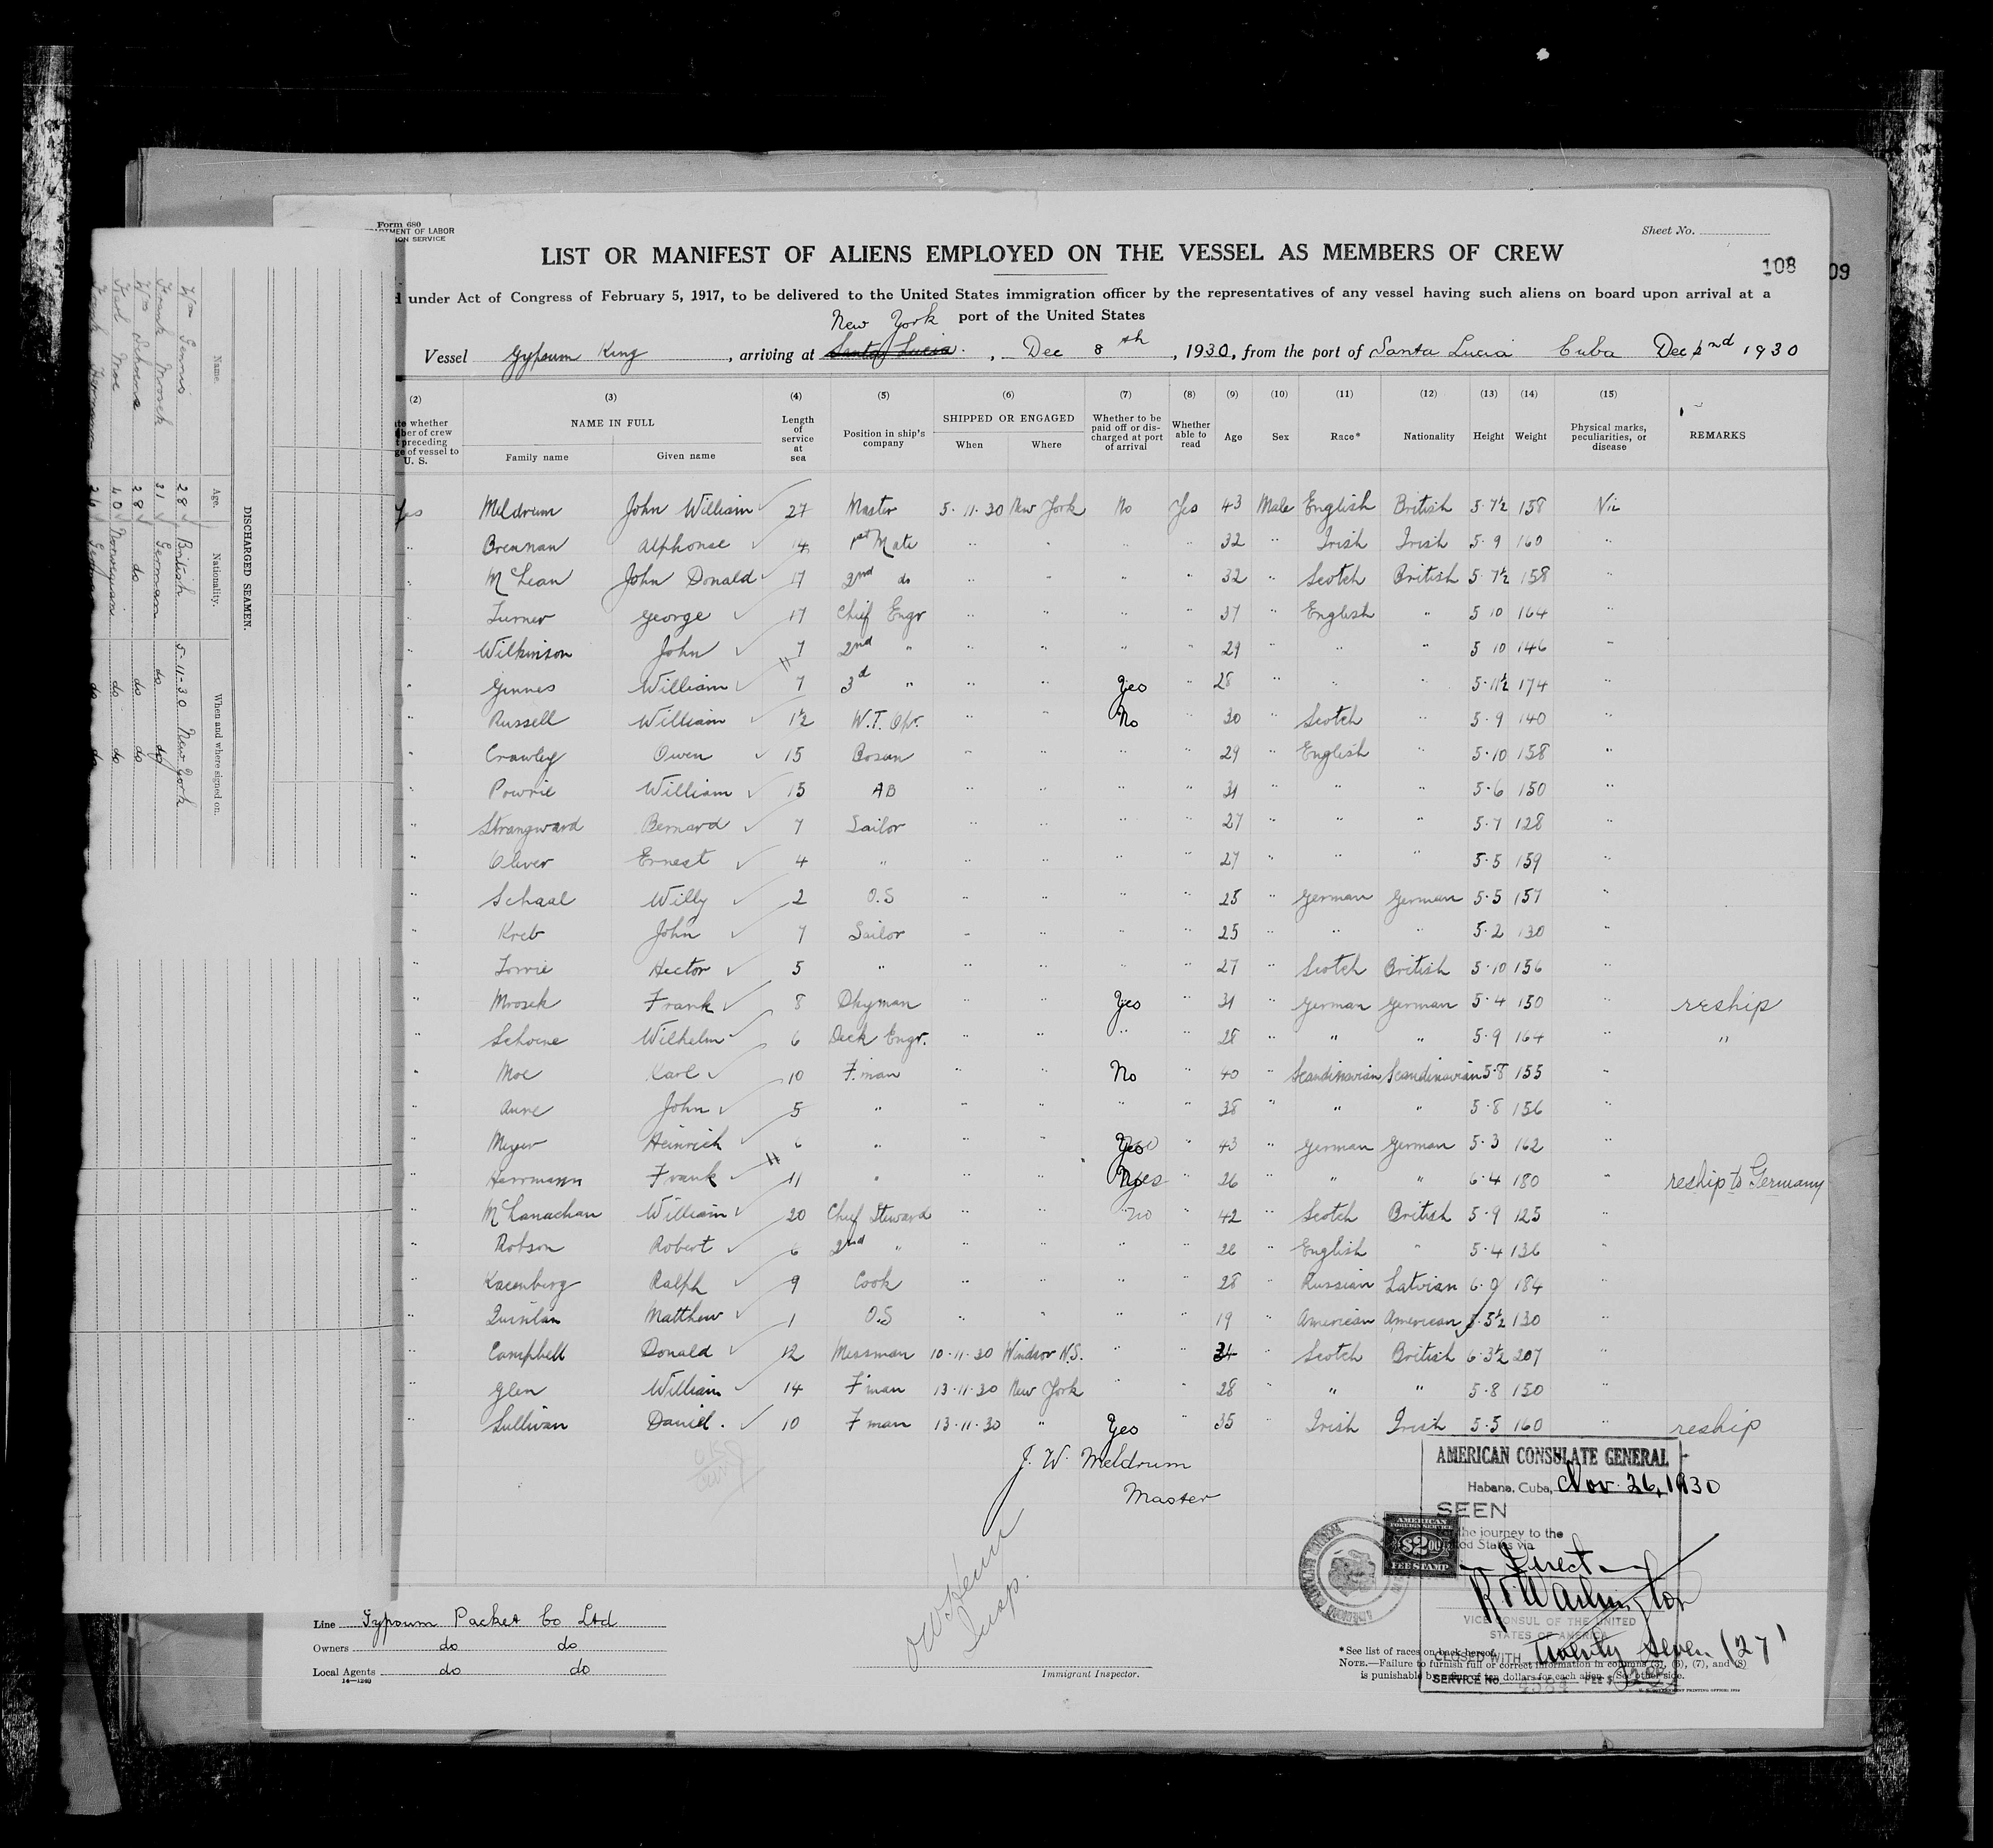 Form 680
MENT OF LABOR
ION SERVICE
Sheet No.
LIST OR MANIFEST OF ALIENS EMPLOYED ON THE VESSEL AS MEMBERS OF CREW
108
09
under Act of Congress of February 5, 1917, to be delivered to the United States immigration officer by the representatives of any vessel having such aliens on board upon arrival at a
New York port of the United States
Vessel Gypsum King, arriving at Santa Lucia, Dec 8th, 1930, from the port of Santa Lucia Cuba Dec 2nd 1930
(2) (3) (4) (5) (6) (7) (8) (9) (10) (11) (12) (13) (14) (15)
whether
ber of crew
preceding
ge of vessel to
U. S.
NAME IN FULL
Family name Given name
Length of service at sea
Position in ship's company
SHIPPED OR ENGAGED
When Where
Whether to be paid off or discharged at port of arrival
Whether able to read
Age Sex Race* Nationality Height Weight
Physical marks, peculiarities, or disease
REMARKS
Yes Meldrum John William 27 Master 5.11.30 New York No Yes 43 Male English British 5.7½ 158 Nil
" Brennan Alphonse 14 1st Mate " " " " 32 " Irish Irish 5.9 160 "
" McLean John Donald 17 2nd do " " " " 32 " Scotch British 5.7½ 158 "
" Turner George 17 Chief Engr " " " " 37 " English " 5 10 164 "
" Wilkinson John 7 2nd " " " " " 29 " " " 5 10 146 "
" Ginnes William 7 3d " " " Yes " 28 " " " 5.11½ 174 "
" Russell William 1½ W.T. Opr. " " No " 30 " Scotch " 5.9 140 "
" Crawley Owen 15 Bosun " " " " 29 " English " 5.10 158 "
" Powrie William 15 AB " " " " 31 " " " 5.6 150 "
" Strangward Bernard 7 Sailor " " " " 27 " " " 5.7 128 "
" Oliver Ernest 4 " " " " " 27 " " " 5.5 159 "
" Schaal Willy 2 O.S " " " " 25 " German German 5.5 157 "
" Kreb John 7 Sailor " " " " 25 " " " 5.2 130 "
" Lowrie Hector 5 " " " " " 27 " Scotch British 5.10 156 "
" Mrosek Frank 8 Dkyman " " Yes " 31 " German German 5.4 150 " reship
" Schoene Wilhelm 6 Deck Engr. " " " " 28 " " " 5.9 164 " "
" Moe Karl 10 F.man " " No " 40 " Scandinavian Scandinavian 5.8 155 "
" Aune John 5 " " " " " 38 " " " 5.8 156 "
" Meyer Heinrich 6 " " " No " 43 " German German 5.3 162 "
" Herrmann Frank 11 " " " Yes " 26 " " " 6.4 180 " reship to Germany
" McLanachan William 20 Chief Steward " " no " 42 " Scotch British 5.9 125 "
" Robson Robert 6 2nd " " " " " 26 " English " 5.4 136 "
" Kacenberg Ralph 9 Cook " " " " 28 " Russian Latvian 6.0 184 "
" Quinlan Matthew 1 O.S " " " " 19 American American 5.5½ 130 "
" Campbell Donald 12 Messman 10.11.30 Windsor N.S. " " 34 " Scotch British 6.3½ 207 "
" Glen William 14 F'man 13.11.30 New York " " 28 " " " 5.8 150 "
" Sullivan Daniel. 10 F man 13.11.30 " Yes " 35 Irish Irish 5.5 160 " reship
J. W. Meldrum
Master
Insp.
AMERICAN CONSULATE GENERAL
Habana, Cuba, Nov. 26, 1930
SEEN
the journey to the
United States via
Direct
VICE CONSUL OF THE UNITED
STATES OF AMERICA
CLOSED WITH Twenty seven (27)
SERVICE No. FEE $
AMERICAN
FOREIGN SERVICE
FEE STAMP
Line Gypsum Packet Co Ltd
Owners do do
Local Agents do do
14—1240
Immigrant Inspector.
*See list of races on back hereof.
NOTE.—Failure to furnish full or correct information in columns (3), (6), (7), and (8)
is punishable by a fine of ten dollars for each alien. See other side.
DISCHARGED SEAMEN.
Name. Age. Nationality. When and where signed on.
Wm Gennis 28 British 5-11-30 New York
Frank Mrosek 31 German do do
Wm Schoene 28 do do do
Karl Moe 40 Norwegian do do
Frank Hermann 26 German do do